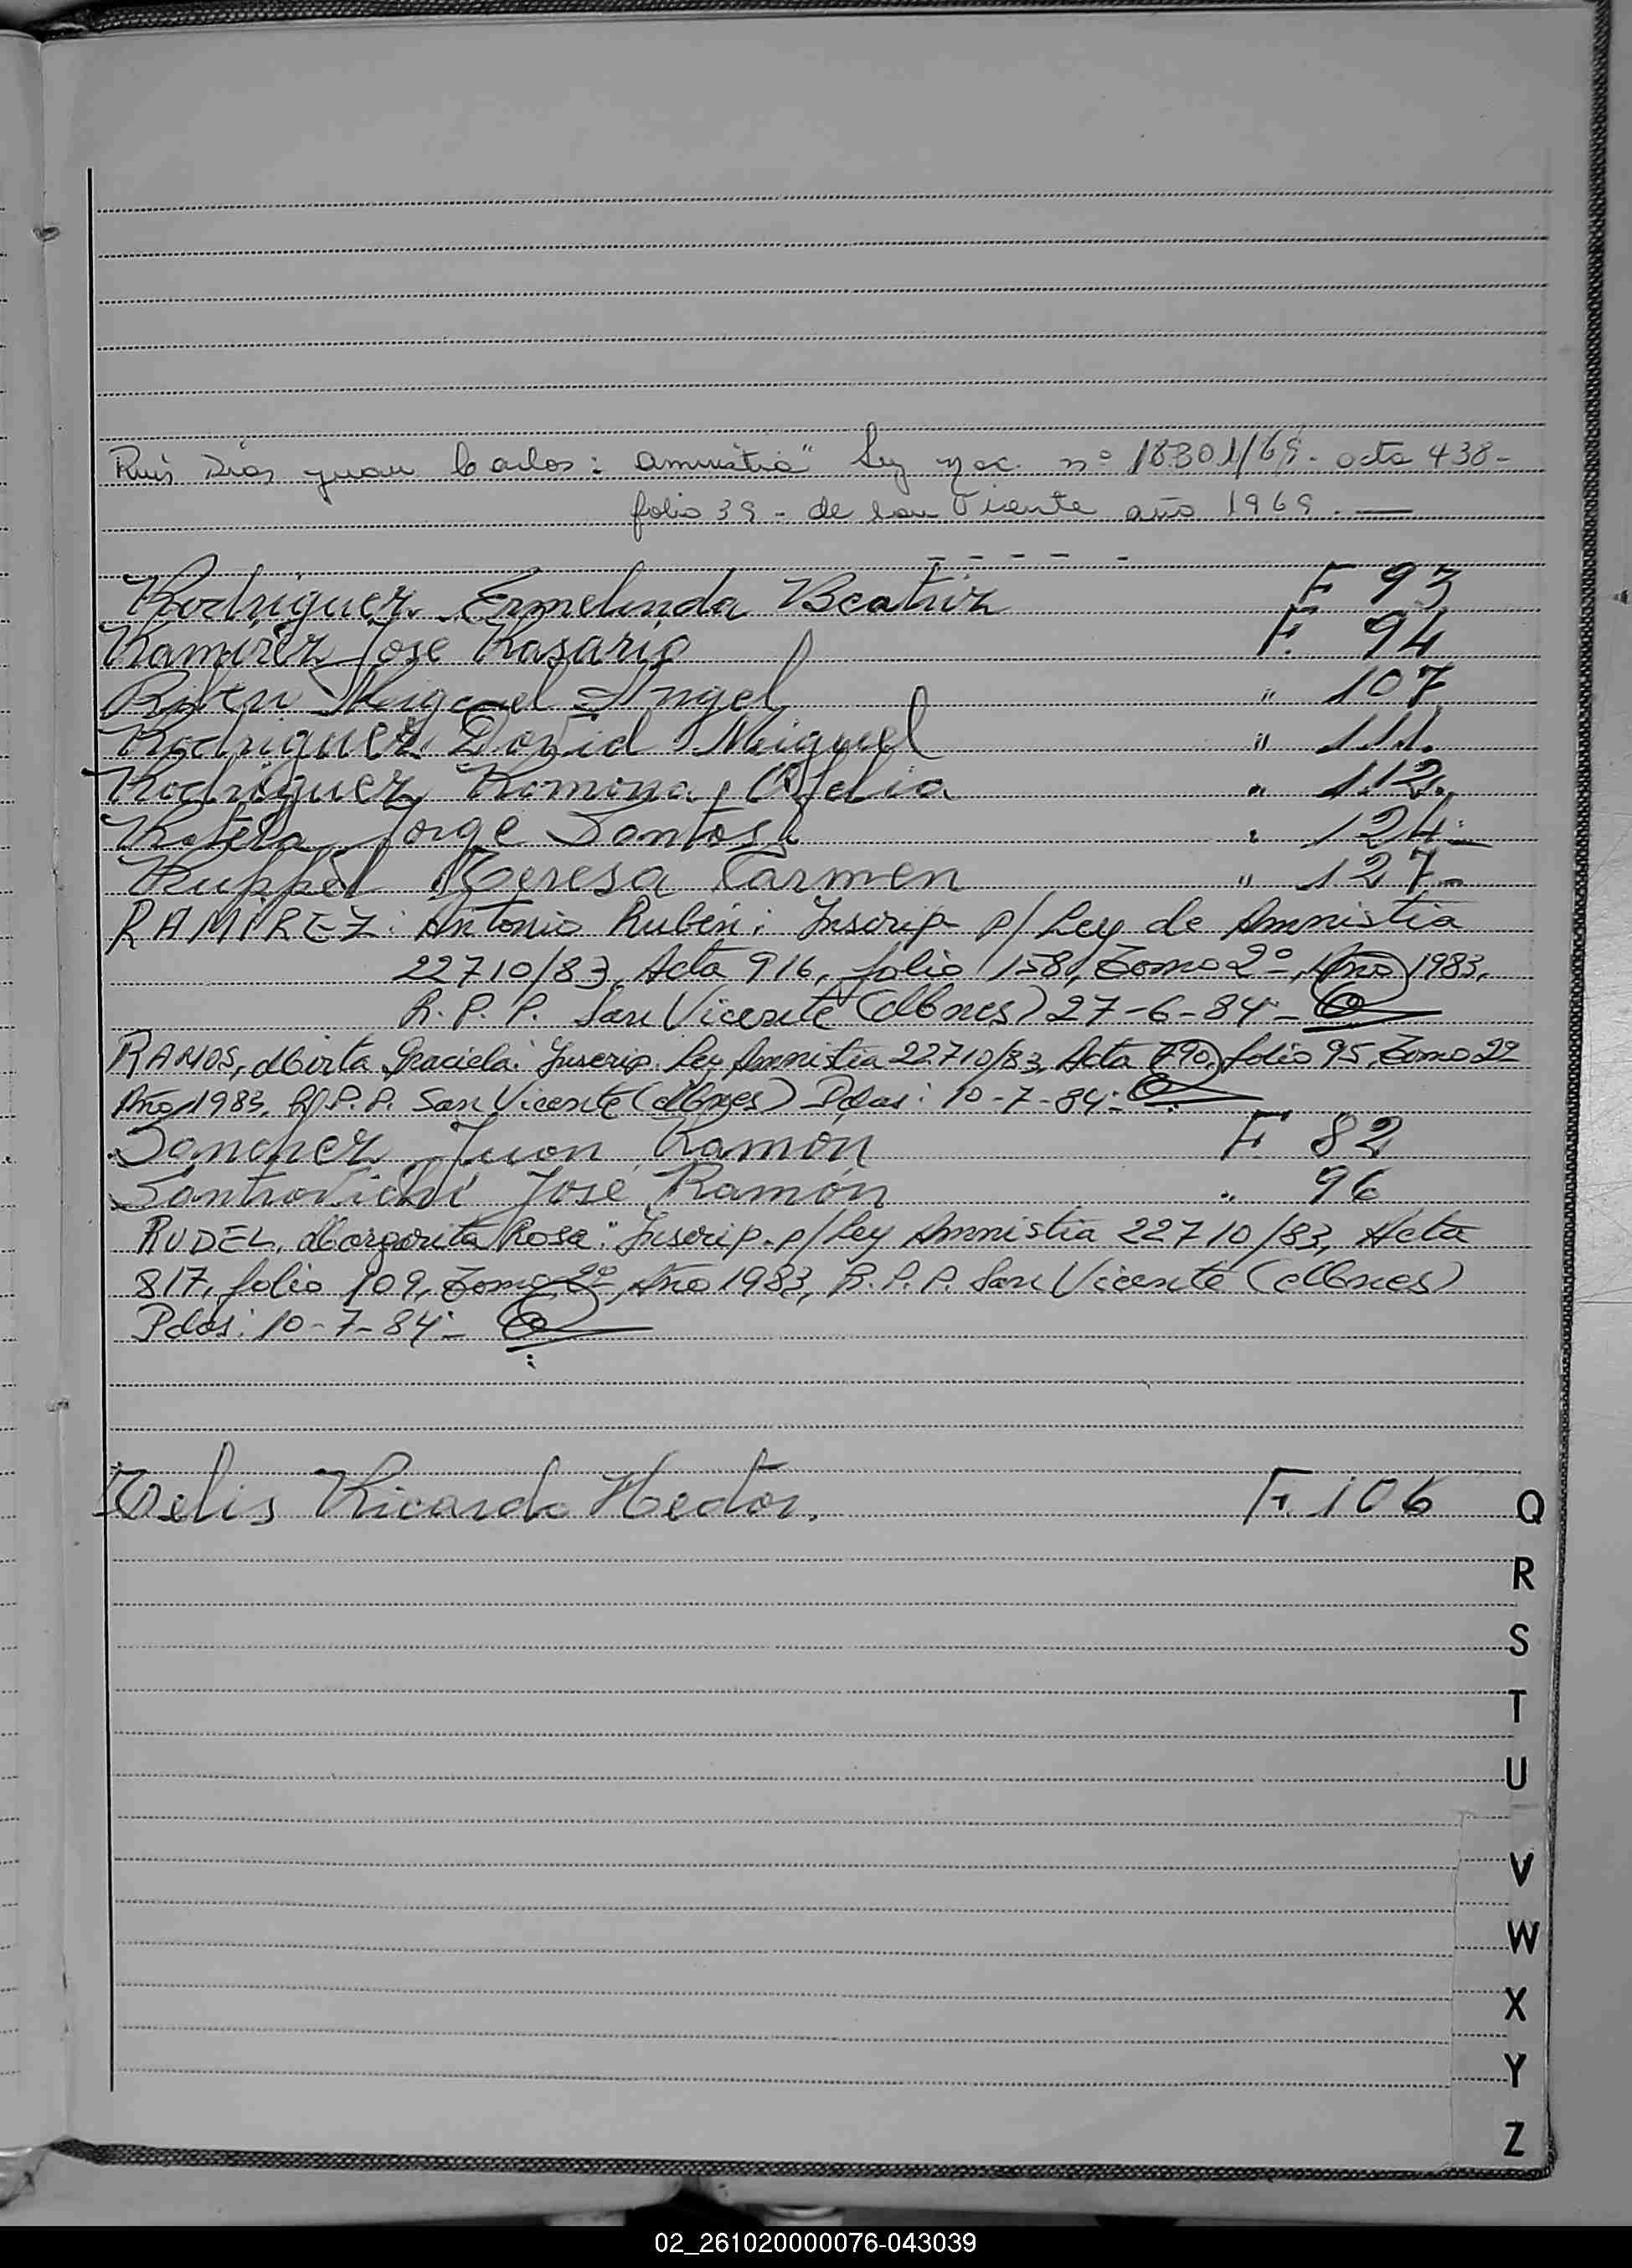 Ruis Dias Juan Carlos: amnistia" Ley nac. nº 18301/69. acta 438-
folio 39 - de San Vicente año 1969. —
- - - - -
Rodriguez Ermelinda Beatriz F 93
Ramirez Jose Rosario F. 94
Miguel Angel " 107
Rodriguez David Miguel " 111.
Rodriguez Ramona Ofelia " 112.
Jorge Santos " 124.-
Ruppel Teresa Carmen " 127-
RAMIREZ: Antonio Rubén: Inscrip p/ Ley de Amnistia
22710/83, Acta 916, folio 158, Tomo 2º, Año 1983,
R. P. P. San Vicente (Mnes) 27-6-84-
RAMOS, Mirta Graciela: Inscrip. Ley Amnistia 22710/83, Acta 790, folio 95, Tomo 2º
Año 1983, R.P.P. San Vicente (Mnes) Pdas: 10-7-84-
Sanchez Juan Ramón F 82
José Ramón " 96
RUDEL, Margarita Rosa: Inscrip. p/ Ley Amnistia 22710/83, Acta
817, folio 109, Tomo 2º, Año 1983, R.P.P. San Vicente (Mnes)
Pdas: 10-7-84-
Telis Ricardo Hector. F. 106
Q
R
S
T
U
V
W
X
Y
Z
02_261020000076-043039